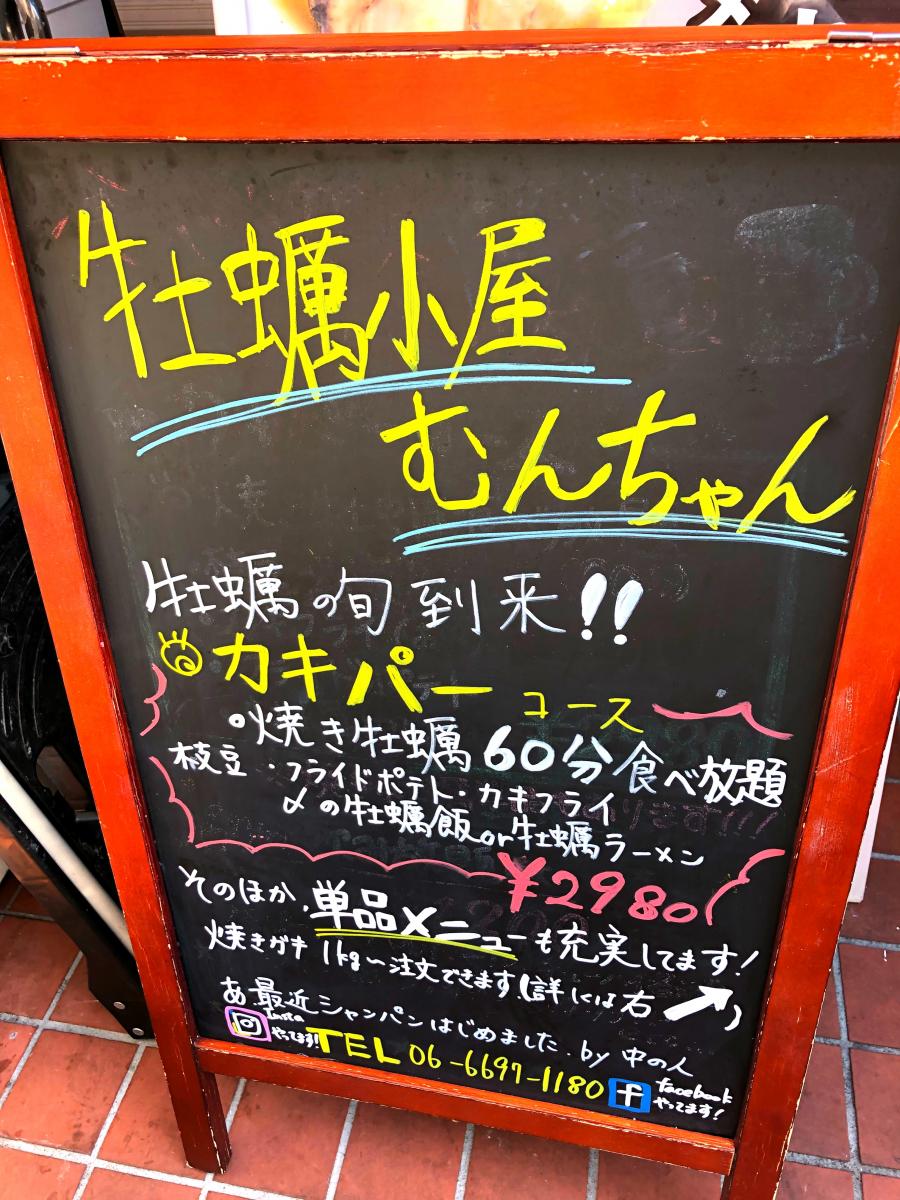 牡蠣小屋
むんちゃん
牡蠣の旬到来!!
カキパーコース
焼き牡蠣60分食べ放題
枝豆・フライドポテト・カキフライ
〆の牡蠣飯or牡蠣ラーメン
¥2980
そのほか、単品メニューも充実してます!
焼きガキ 1kg〜注文できます!(詳しくは右)
あ、最近シャンパンはじめました。by 中の人
Insta
やってます!
TEL 06-6697-1180
f
facebook
やってます!